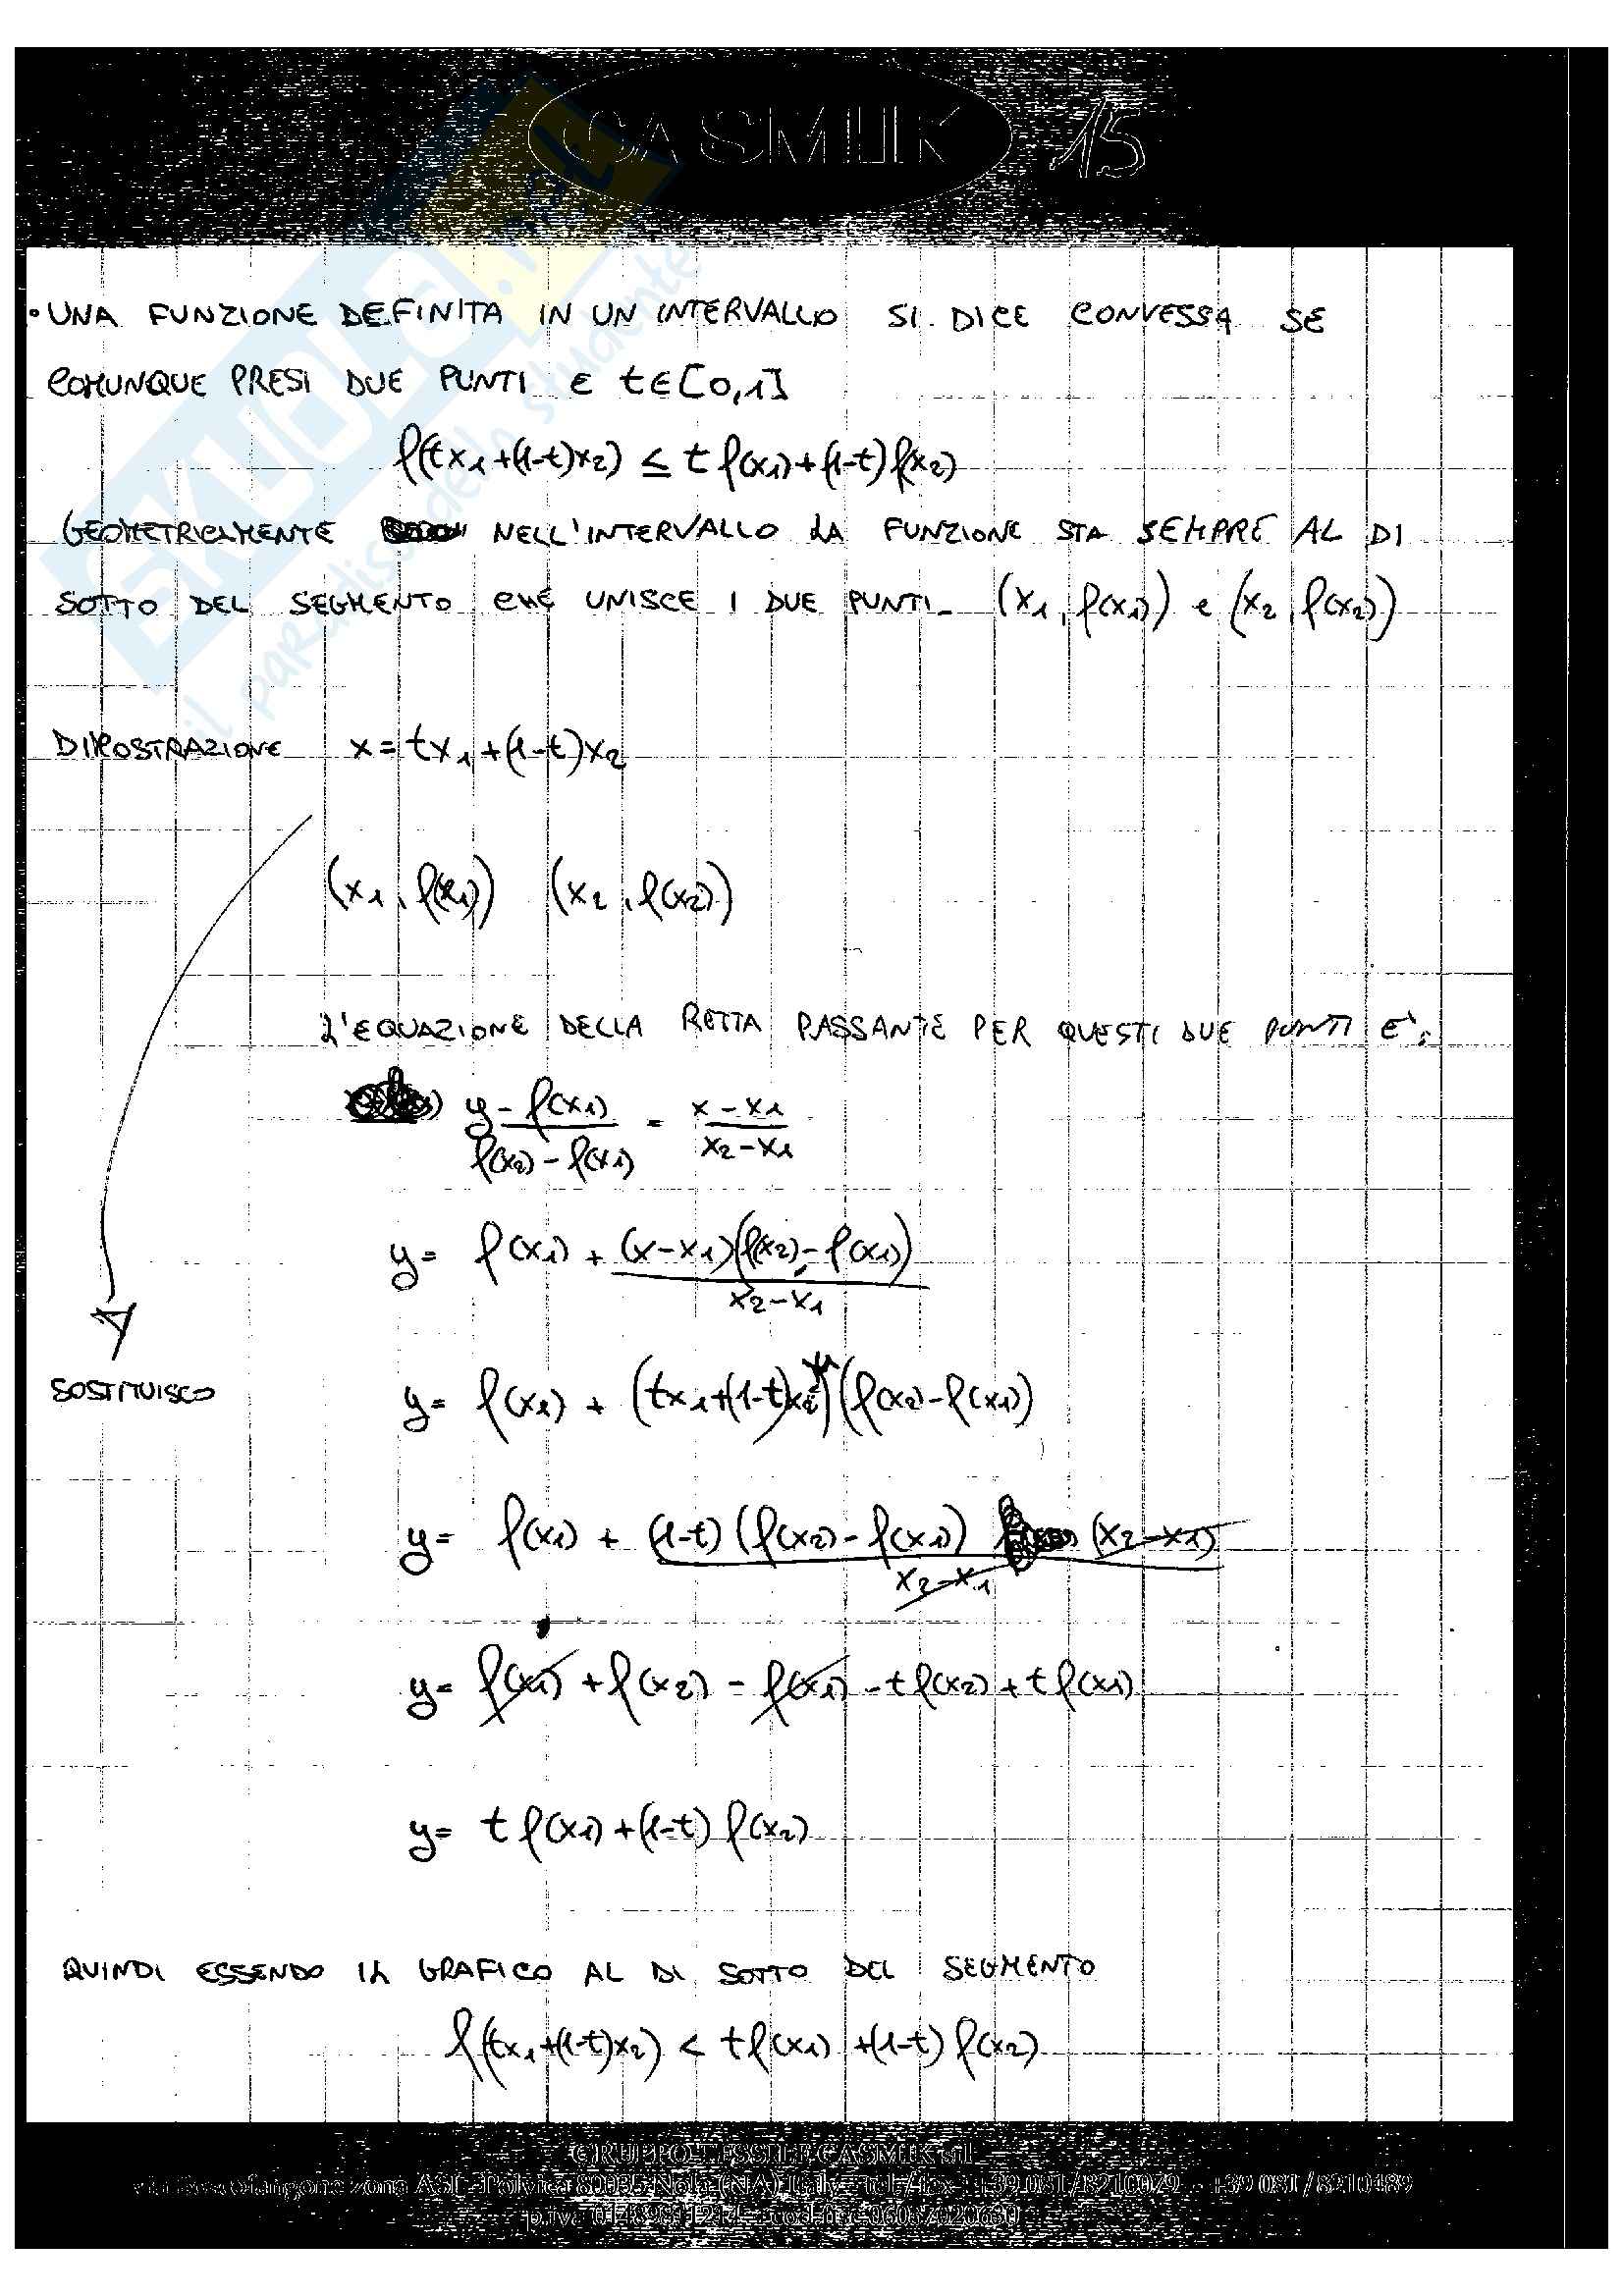 CASMIK 15
SKUOLA.net
il paradiso dello studente
• UNA FUNZIONE DEFINITA IN UN INTERVALLO SI DICE CONVESSA SE
COMUNQUE PRESI DUE PUNTI E t∈[0,1]
f(tx₁+(1-t)x₂) ≤ t f(x₁)+(1-t)f(x₂)
GEOMETRICAMENTE NELL'INTERVALLO LA FUNZIONE STA SEMPRE AL DI
SOTTO DEL SEGMENTO CHE UNISCE I DUE PUNTI (x₁, f(x₁)) e (x₂, f(x₂))
DIMOSTRAZIONE x = tx₁+(1-t)x₂
(x₁, f(x₁)) (x₂, f(x₂))
L'EQUAZIONE DELLA RETTA PASSANTE PER QUESTI DUE PUNTI E':
y - f(x₁) / f(x₂) - f(x₁) = x - x₁ / x₂ - x₁
y = f(x₁) + (x-x₁)(f(x₂) - f(x₁)) / x₂-x₁
SOSTITUISCO y = f(x₁) + (tx₁+(1-t)x₂)(f(x₂)-f(x₁))
y = f(x₁) + (1-t)(f(x₂) - f(x₁)) (x₂-x₁) / x₂-x₁
y = f(x₁) + f(x₂) - f(x₁) - t f(x₂) + t f(x₁)
y = t f(x₁) + (1-t) f(x₂)
QUINDI ESSENDO IL GRAFICO AL DI SOTTO DEL SEGMENTO
f(tx₁+(1-t)x₂) < t f(x₁) + (1-t) f(x₂)
GRUPPO TESSILE CASMIK srl
zona ASI - Polvica 80035 Nola (NA) Italy - tel./fax +39 081/8210029 - +39 081/8210489